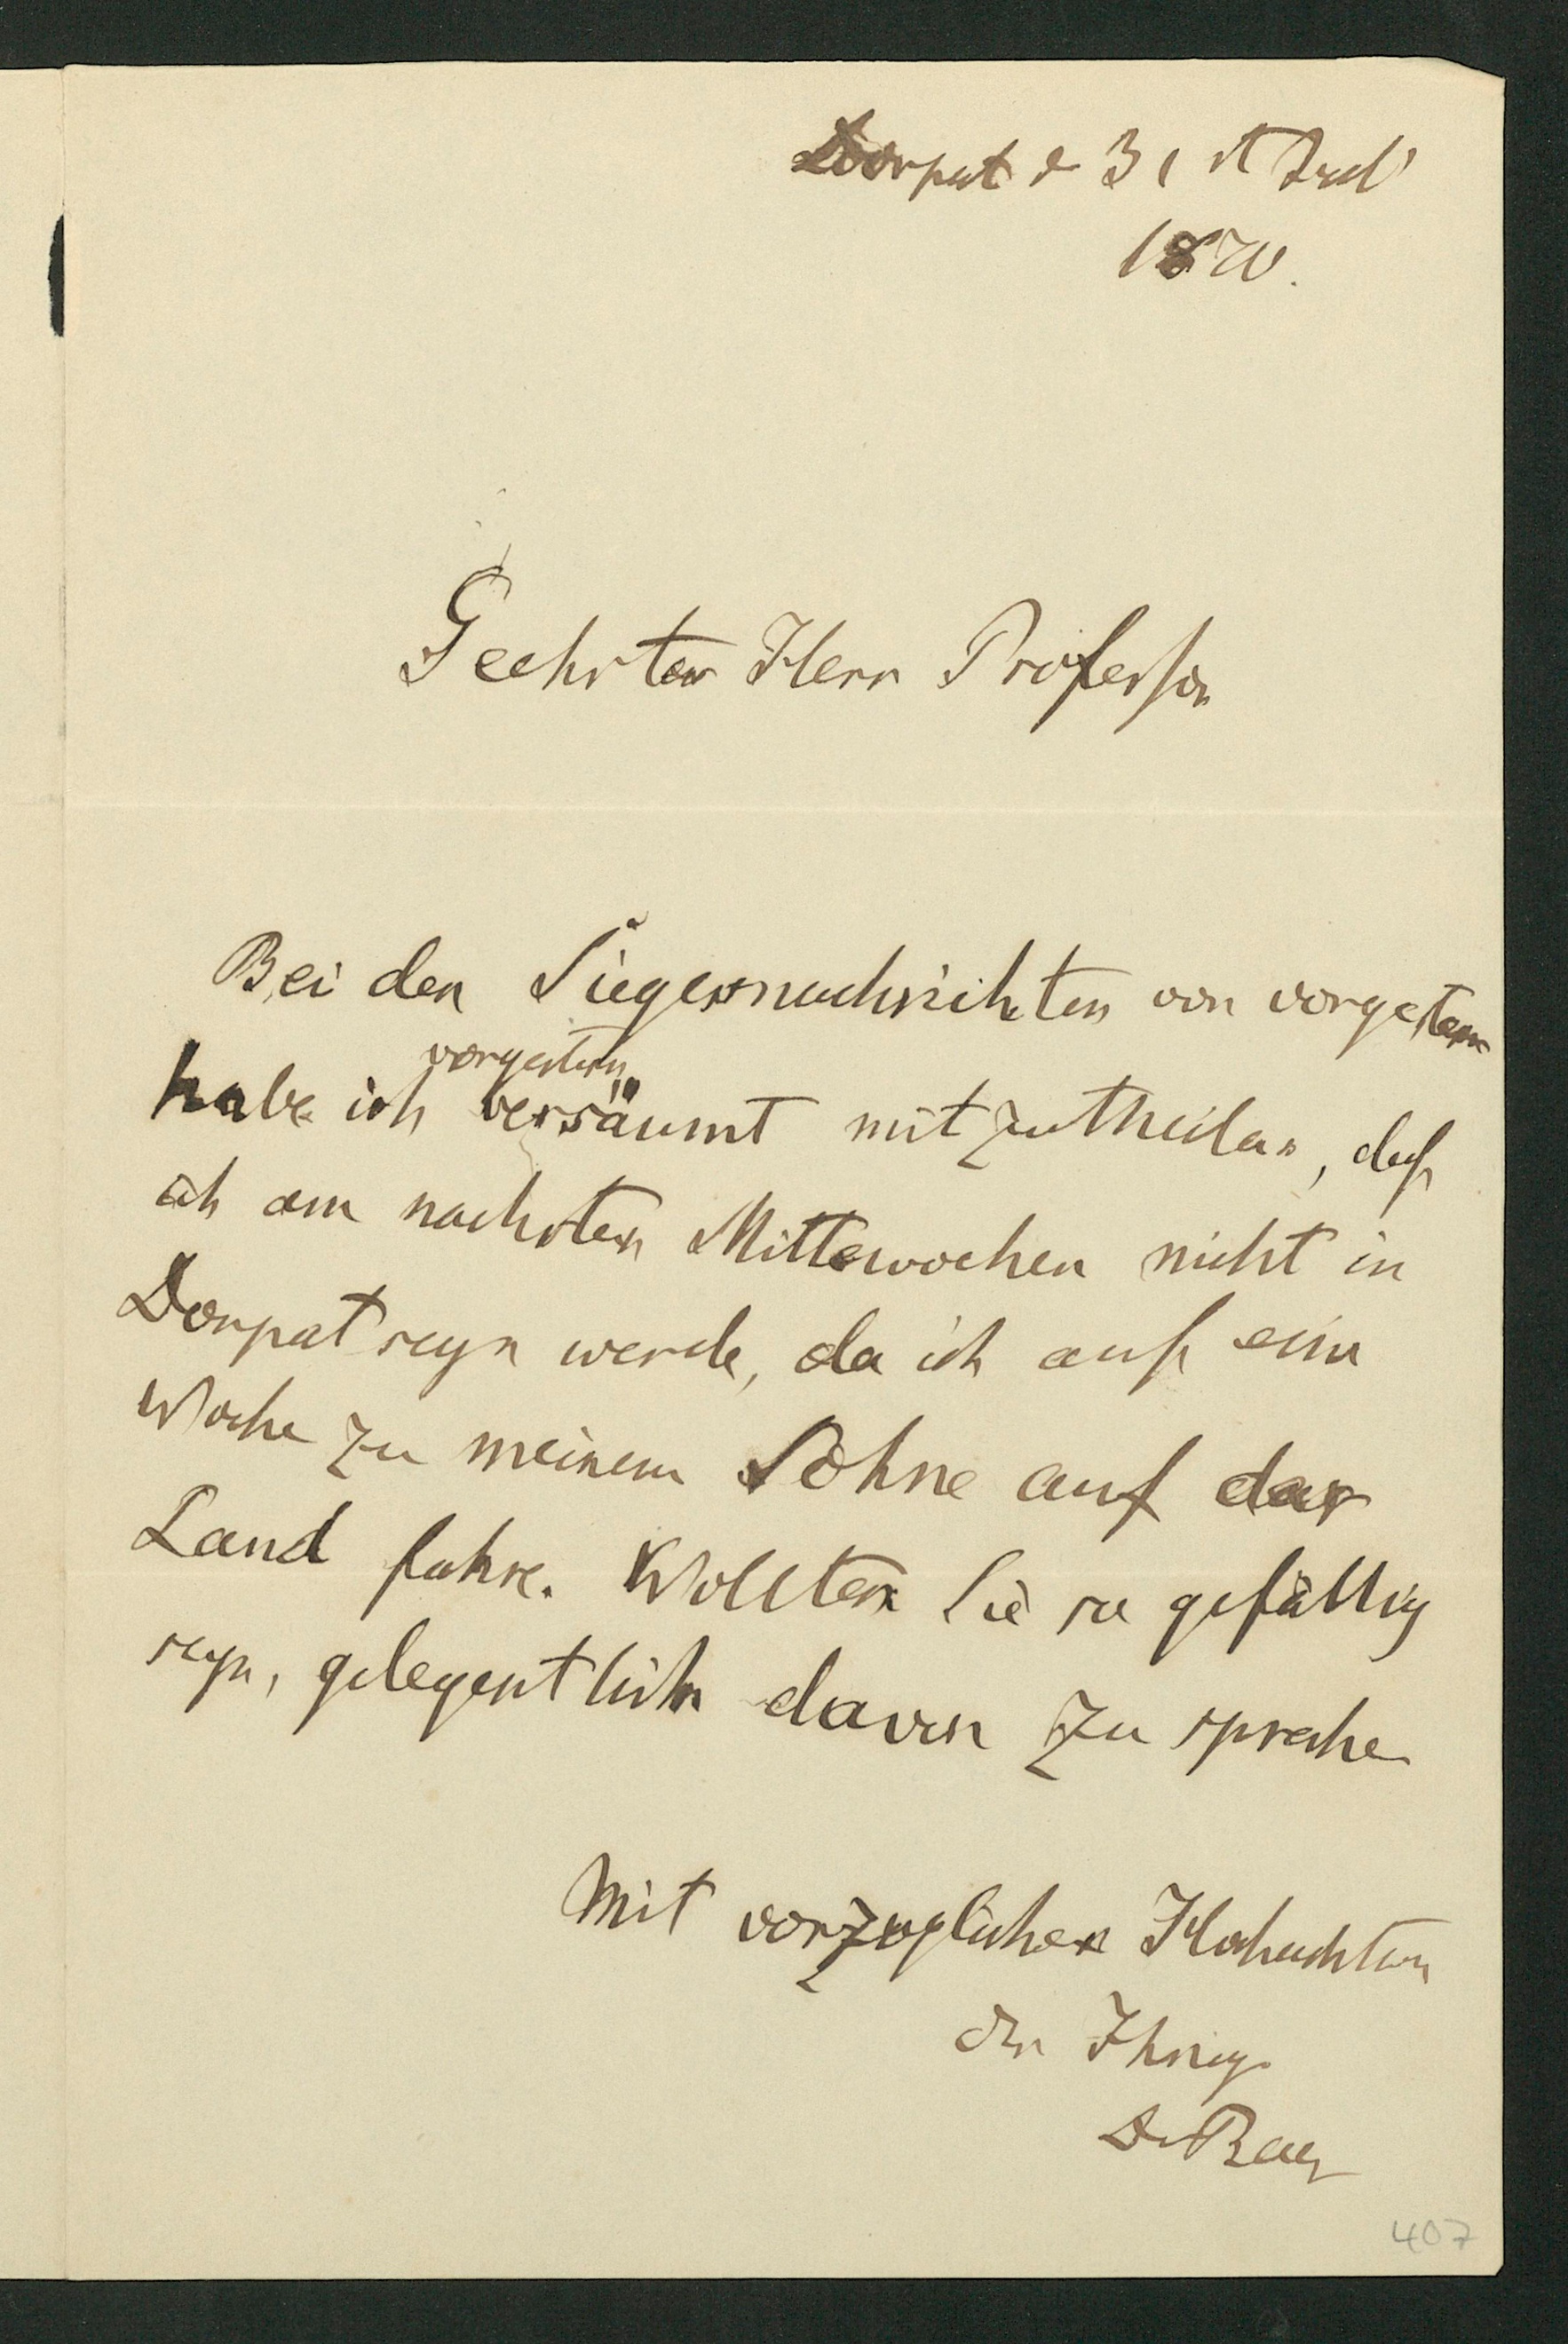 Dorpat d 31 st Juli
1870.
Geehrter Herr Professor
Bei den Siegesnachrichten von vorgestern
vorgestern
habe ich versäumt mitzutheilen, daß
ich am nachsten Mittewochen nicht in
Dorpat seyn werde, da ich auf eine
Woche zu meinem Sohne auf das
Land fahre. Wollten Sie so gefällig
seyn, gelegentlich davon zu sprechen
Mit vorzuglicher Hochachtung
der Ihrige
Dr Baer
407